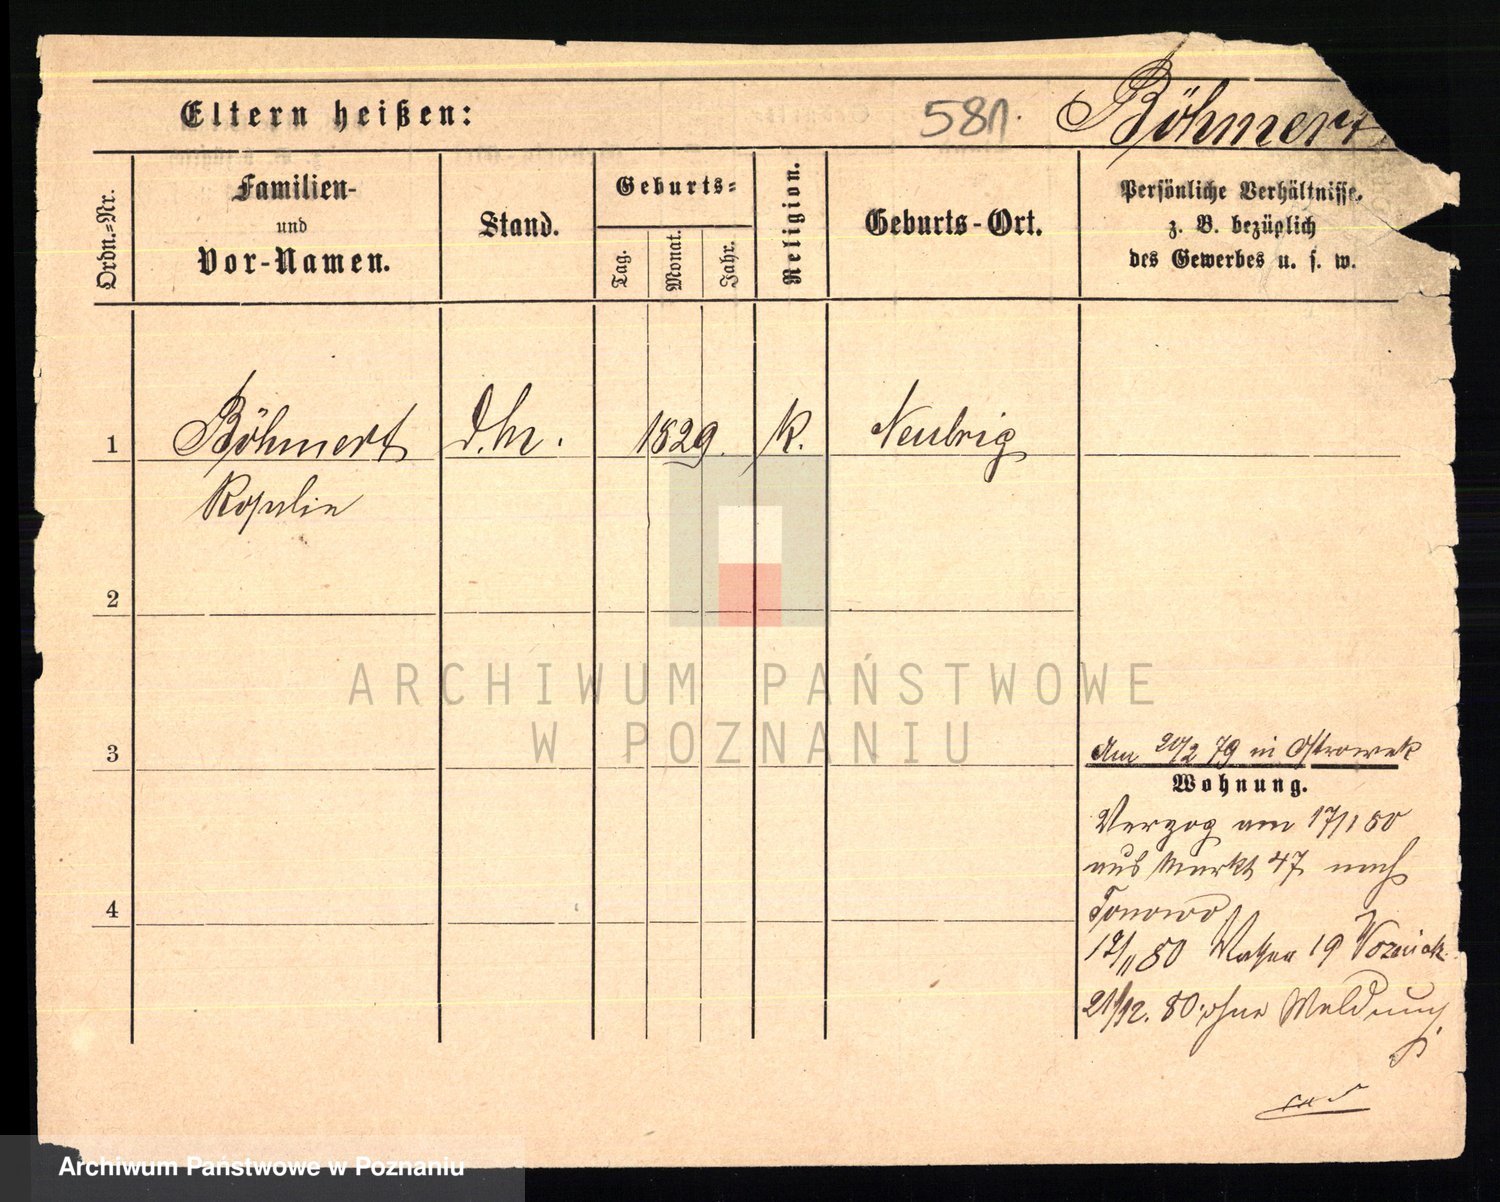 Eltern heißen:
581.
Böhmert
Ordn.=Nr.
Familien-
und
Vor-Namen.
Stand.
Geburts=
Tag.
Monat.
Jahr.
Religion.
Geburts-Ort.
Persönliche Verhältnisse.
z. B. bezüglich
des Gewerbes u. s. w.
1
Böhmert
1829.
k.
Neubrig
Rosalie
2
3
4
ARCHIWUM PAŃSTWOWE
W POZNANIU
Am 20/2 79 in Ostrowek
Wohnung.
Verzog am 17/1 80
aus Markt 47 nach
12/11 80 19
21/12. 80 ohne Meldung
Archiwum Państwowe w Poznaniu